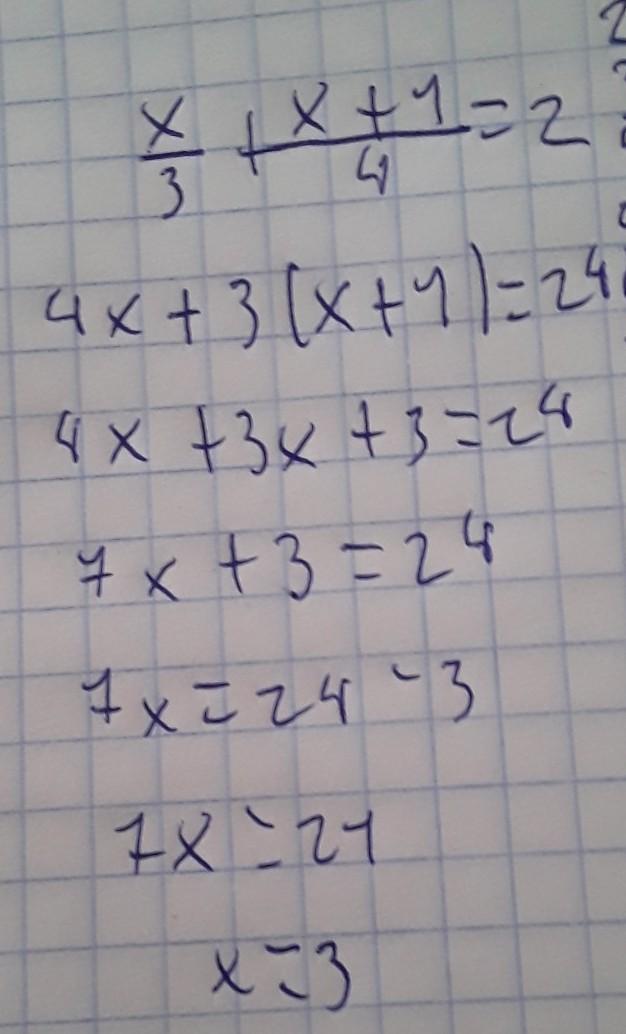 x/3 + (x+1)/4 = 2
4x + 3(x+1) = 24
4x + 3x + 3 = 24
7x + 3 = 24
7x = 24 - 3
7x = 21
x = 3